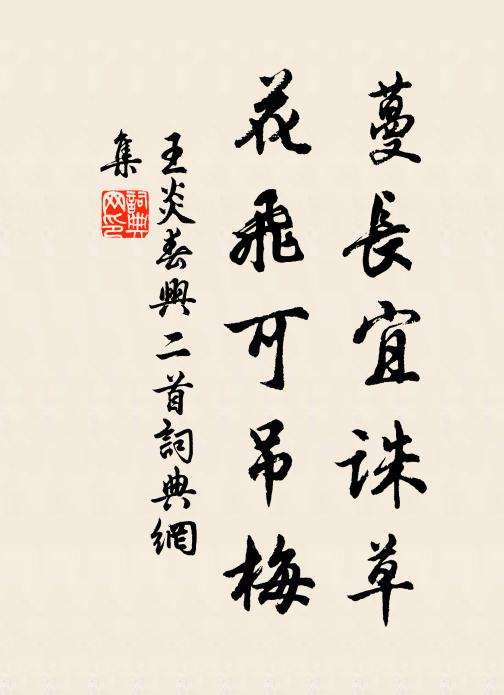 蔓長宜誅草
花飛可吊梅
王炎春興二首詞典網
集
詞典
网印